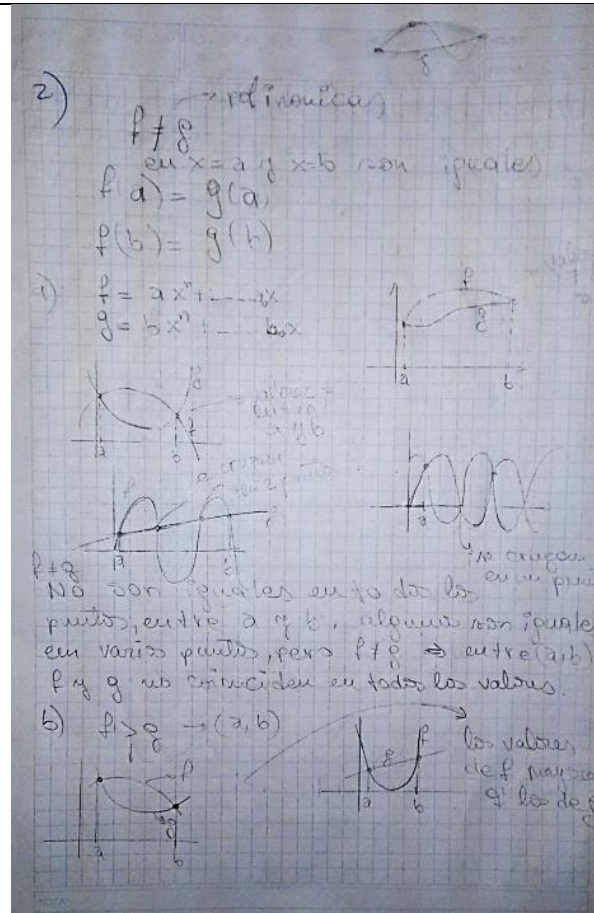 2)
→ polinomicas
f ≠ g
en x=a y x=b son iguales
f(a) = g(a)
f(b) = g(b)
1)
f = ax^n + ---- x
g = bx^n + ---- b₀x
f
g
a
b
g
f
entre
a y b
a
b
f
se cruzan
en 2 puntos
g
a
c
a
no cruzan
en un punto
f ≠ g
No son iguales en todos los
puntos, entre a y b, algunos son iguales
en varios puntos, pero f ≠ g ⇒ entre (a,b)
f y g no coinciden en todos los valores.
b) f > g → (a,b)
f
g
a
b
g
f
a
b
los valores
de f mayores
q' los de g
NOTA